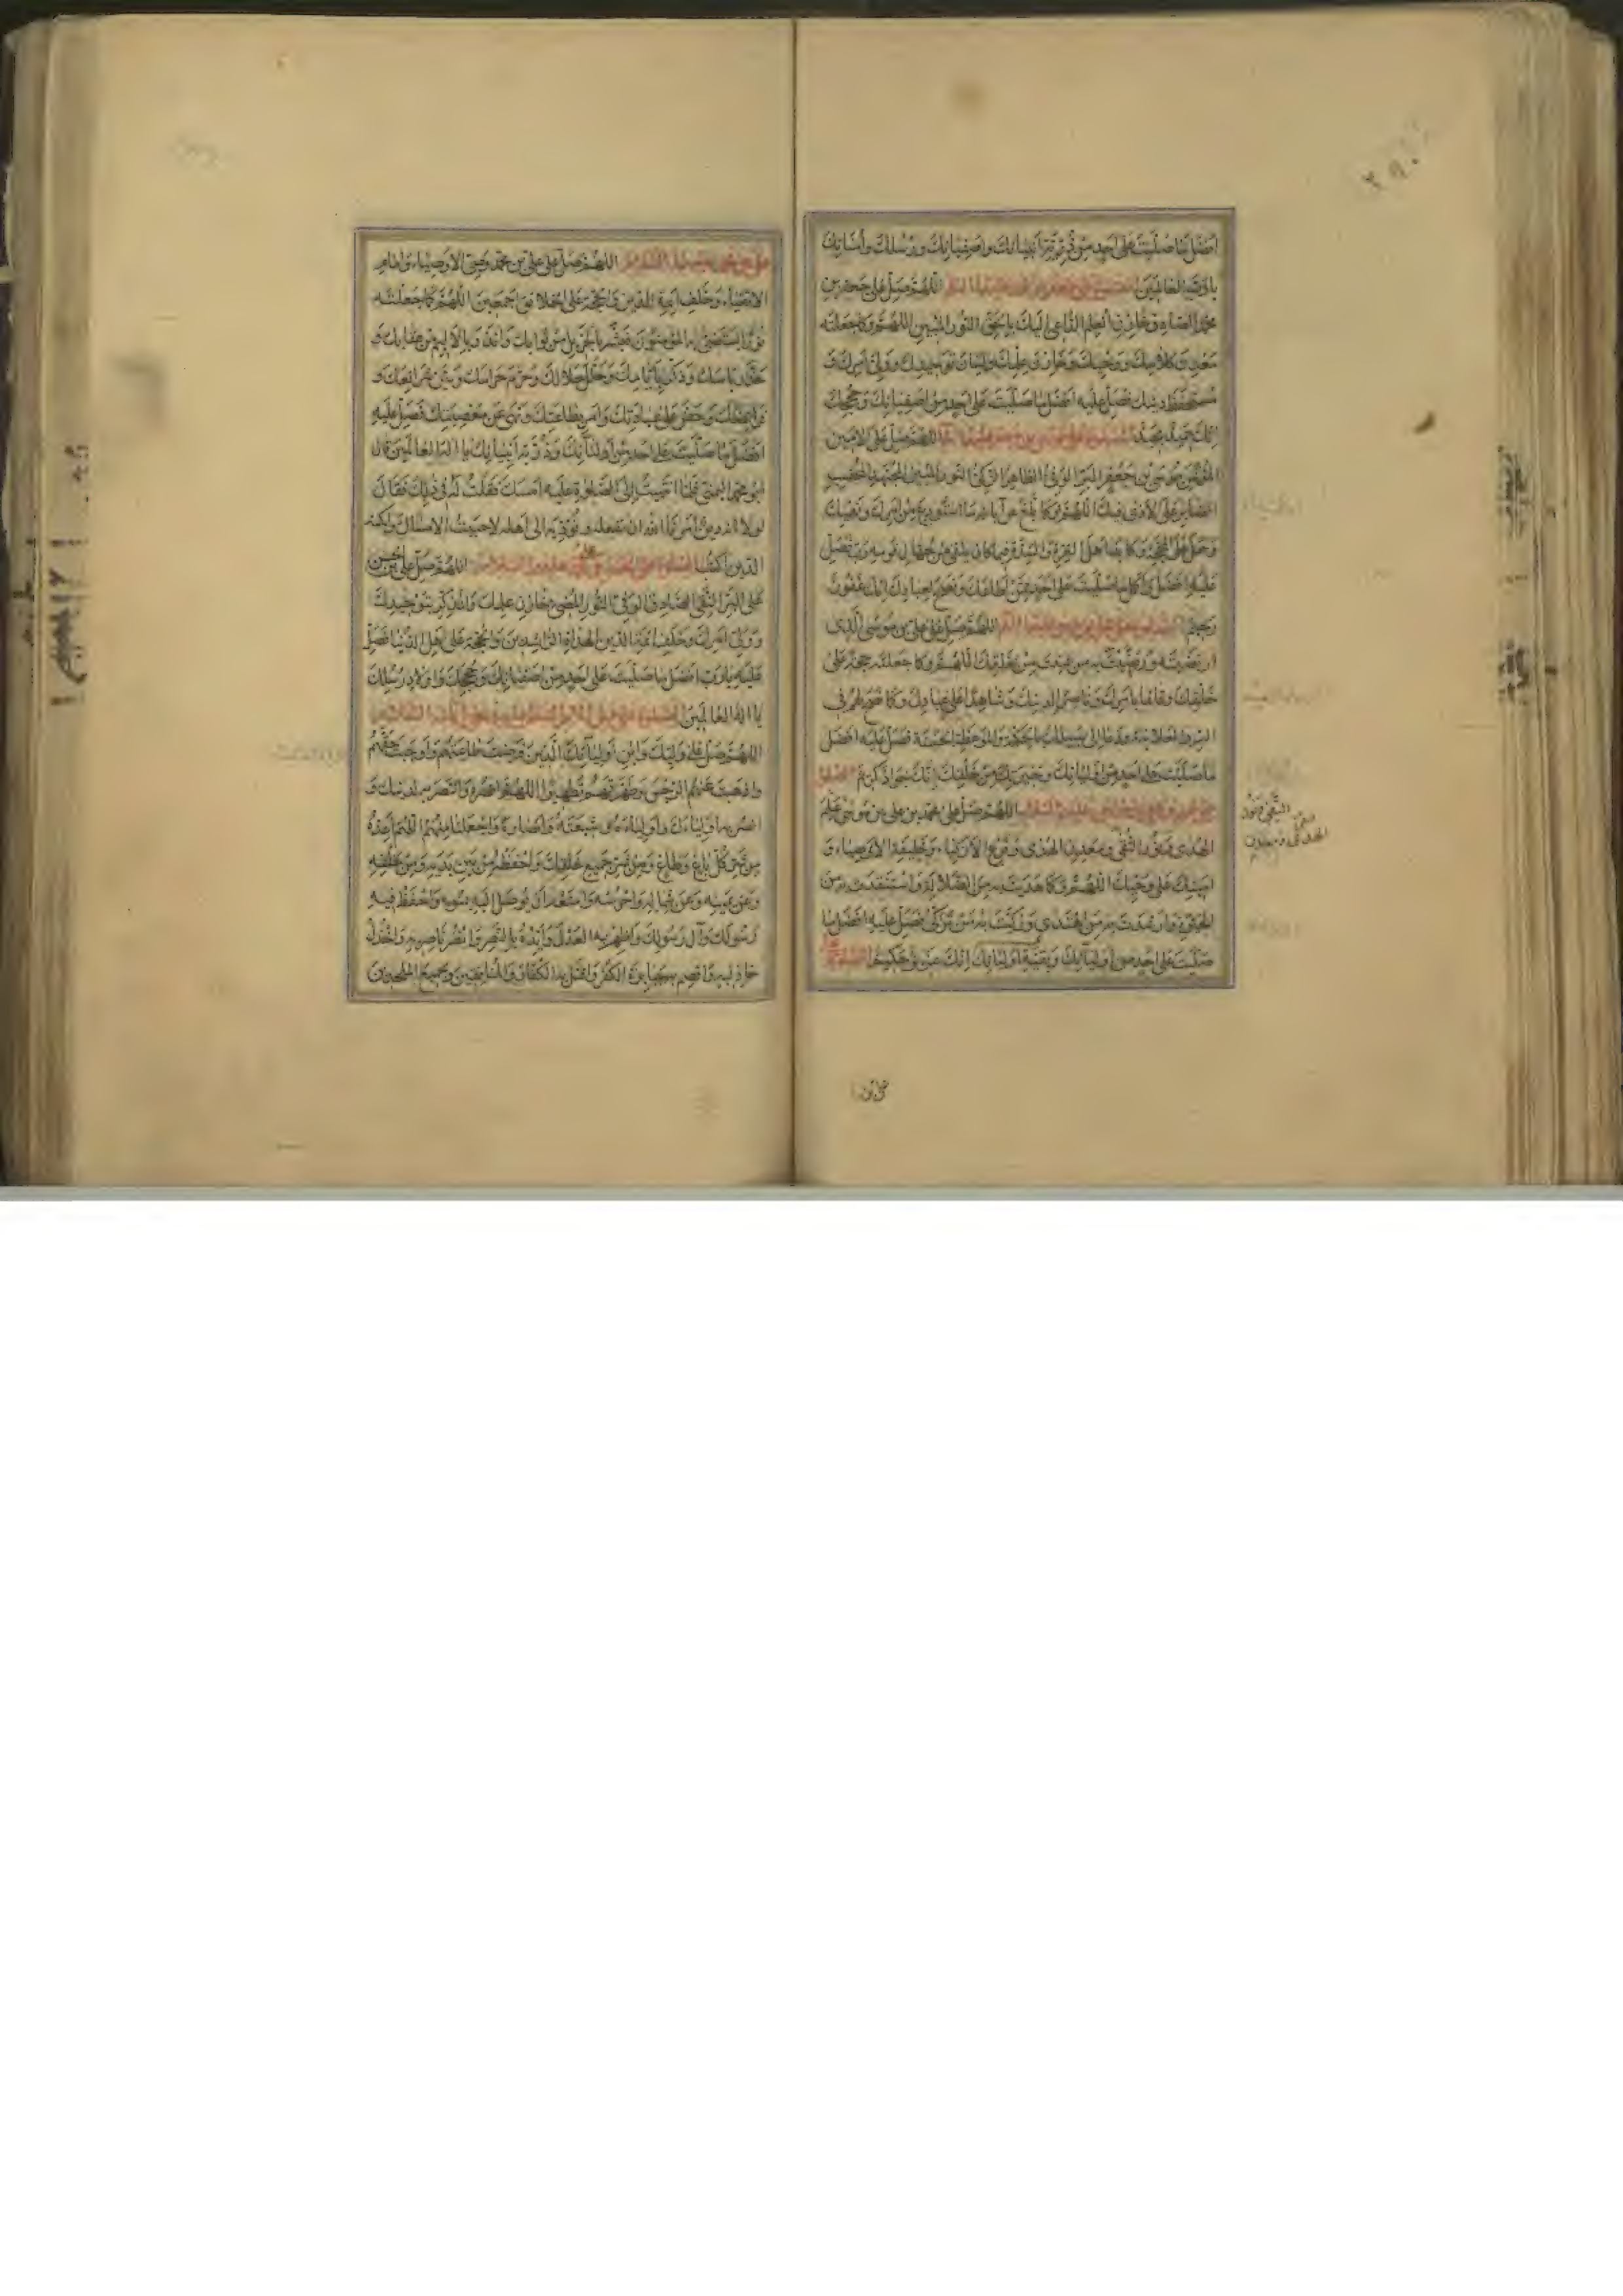 افضل ما صليت على احد من ذرية انبيائك واصفيائك ورسلك وأمنائك
يا رب العالمين اللهم صل على جعفر بن
محمد الصادق خازن العلم الداعى اليك بالحق النور المبين اللهم وكما جعلته
معدن كلامك ووحيك وخازن علمك ولسان توحيدك وولى امرك و
مستحفظ دينك فصل عليه افضل ما صليت على احد من اصفيائك وحججك
انك حميد مجيد اللهم صل على الامين
المؤتمن موسى بن جعفر البر الوفى الطاهر الزكى النور المبين المجتهد المحتسب
الصابر على الاذى فيك اللهم وكما بلغ عن آبائه ما استودع من امرك ونهيك
وحمل على المحجة وكابد اهل العزة والشدة فيما كان يلقى من جهال قومه رب فصل
عليه افضل واكمل ما صليت على احد ممن اطاعك ونصح لعبادك انك غفور
رحيم اللهم صل على على بن موسى الذى
ارتضيته ورضيت به من شئت من خلقك اللهم وكما جعلته حجة على
خلقك وقائما بامرك وناصرا لدينك وشاهدا على عبادك وكما نصح لهم فى
السر والعلانية ودعا الى سبيلك بالحكمة والموعظة الحسنة فصل عليه افضل
ما صليت على احد من اوليائك وخيرتك من خلقك انك جواد كريم الصلوة
على محمد بن على بن موسى عليهم السلام اللهم صل على محمد بن على بن موسى علم
الهدى ونور التقى ومعدن الهدى وفرع الازكياء وخليفة الاوصياء و
امينك على وحيك اللهم وكما هديت به من الضلالة واستنقذت به من
الحيرة وارشدت به من اهتدى وزكيت به من تزكى فصل عليه افضل ما
صليت على احد من اوليائك وبقية اوليائك انك عزيز حكيم الصلوة
على
على بن محمد عليهما السلام اللهم صل على على بن محمد وصى الاوصياء وامام
الاتقياء وخلف ائمة الدين والحجة على الخلائق اجمعين اللهم كما جعلته
نورا يستضىء به المؤمنون فبشر بالجزيل من ثوابك وانذر بالاليم من عقابك و
حذر باسك وذكر بايامك واحل حلالك وحرم حرامك وبين شرائعك و
فرائضك وحض على عبادتك وامر بطاعتك ونهى عن معصيتك فصل عليه
افضل ما صليت على احد من اوليائك وذرية انبيائك يا اله العالمين قال
ابو محمد اليمنى فلما انتهيت الى الصلوة عليه امسك فقلت له فى ذلك فقال
لولا انه دين امرنا الله ان نفعله ونؤديه الى اهله لاحببت الامساك ولكنه
الدين اكتب الصلوة على الحسن بن على بن محمد عليهم السلام اللهم صل على الحسن
على البر التقى الصادق الوفى النور المضىء خازن علمك والمذكر بتوحيدك
وولى امرك وخلف ائمة الدين الهداة الراشدين والحجة على اهل الدنيا فصل
عليه يا رب افضل ما صليت على احد من اصفيائك وحججك واولاد رسلك
يا اله العالمين
اللهم صل على وليك وابن اوليائك الذين فرضت طاعتهم واوجبت حقهم
واذهبت عنهم الرجس وطهرتهم تطهيرا اللهم انصره وانتصر به لدينك و
انصر به اولياءك واولياءه وشيعته وانصاره واجعلنا منهم اللهم اعذه
من شر كل باغ وطاغ ومن شر جميع خلقك واحفظه من بين يديه ومن خلفه
وعن يمينه وعن شماله واحرسه وامنعه ان يوصل اليه بسوء واحفظ فيه
رسولك وآل رسولك واظهر به العدل وايده بالنصر وانصر ناصريه واخذل
خاذليه واقصم به جبابرة الكفر واقتل به الكفار والمنافقين وجميع الملحدين